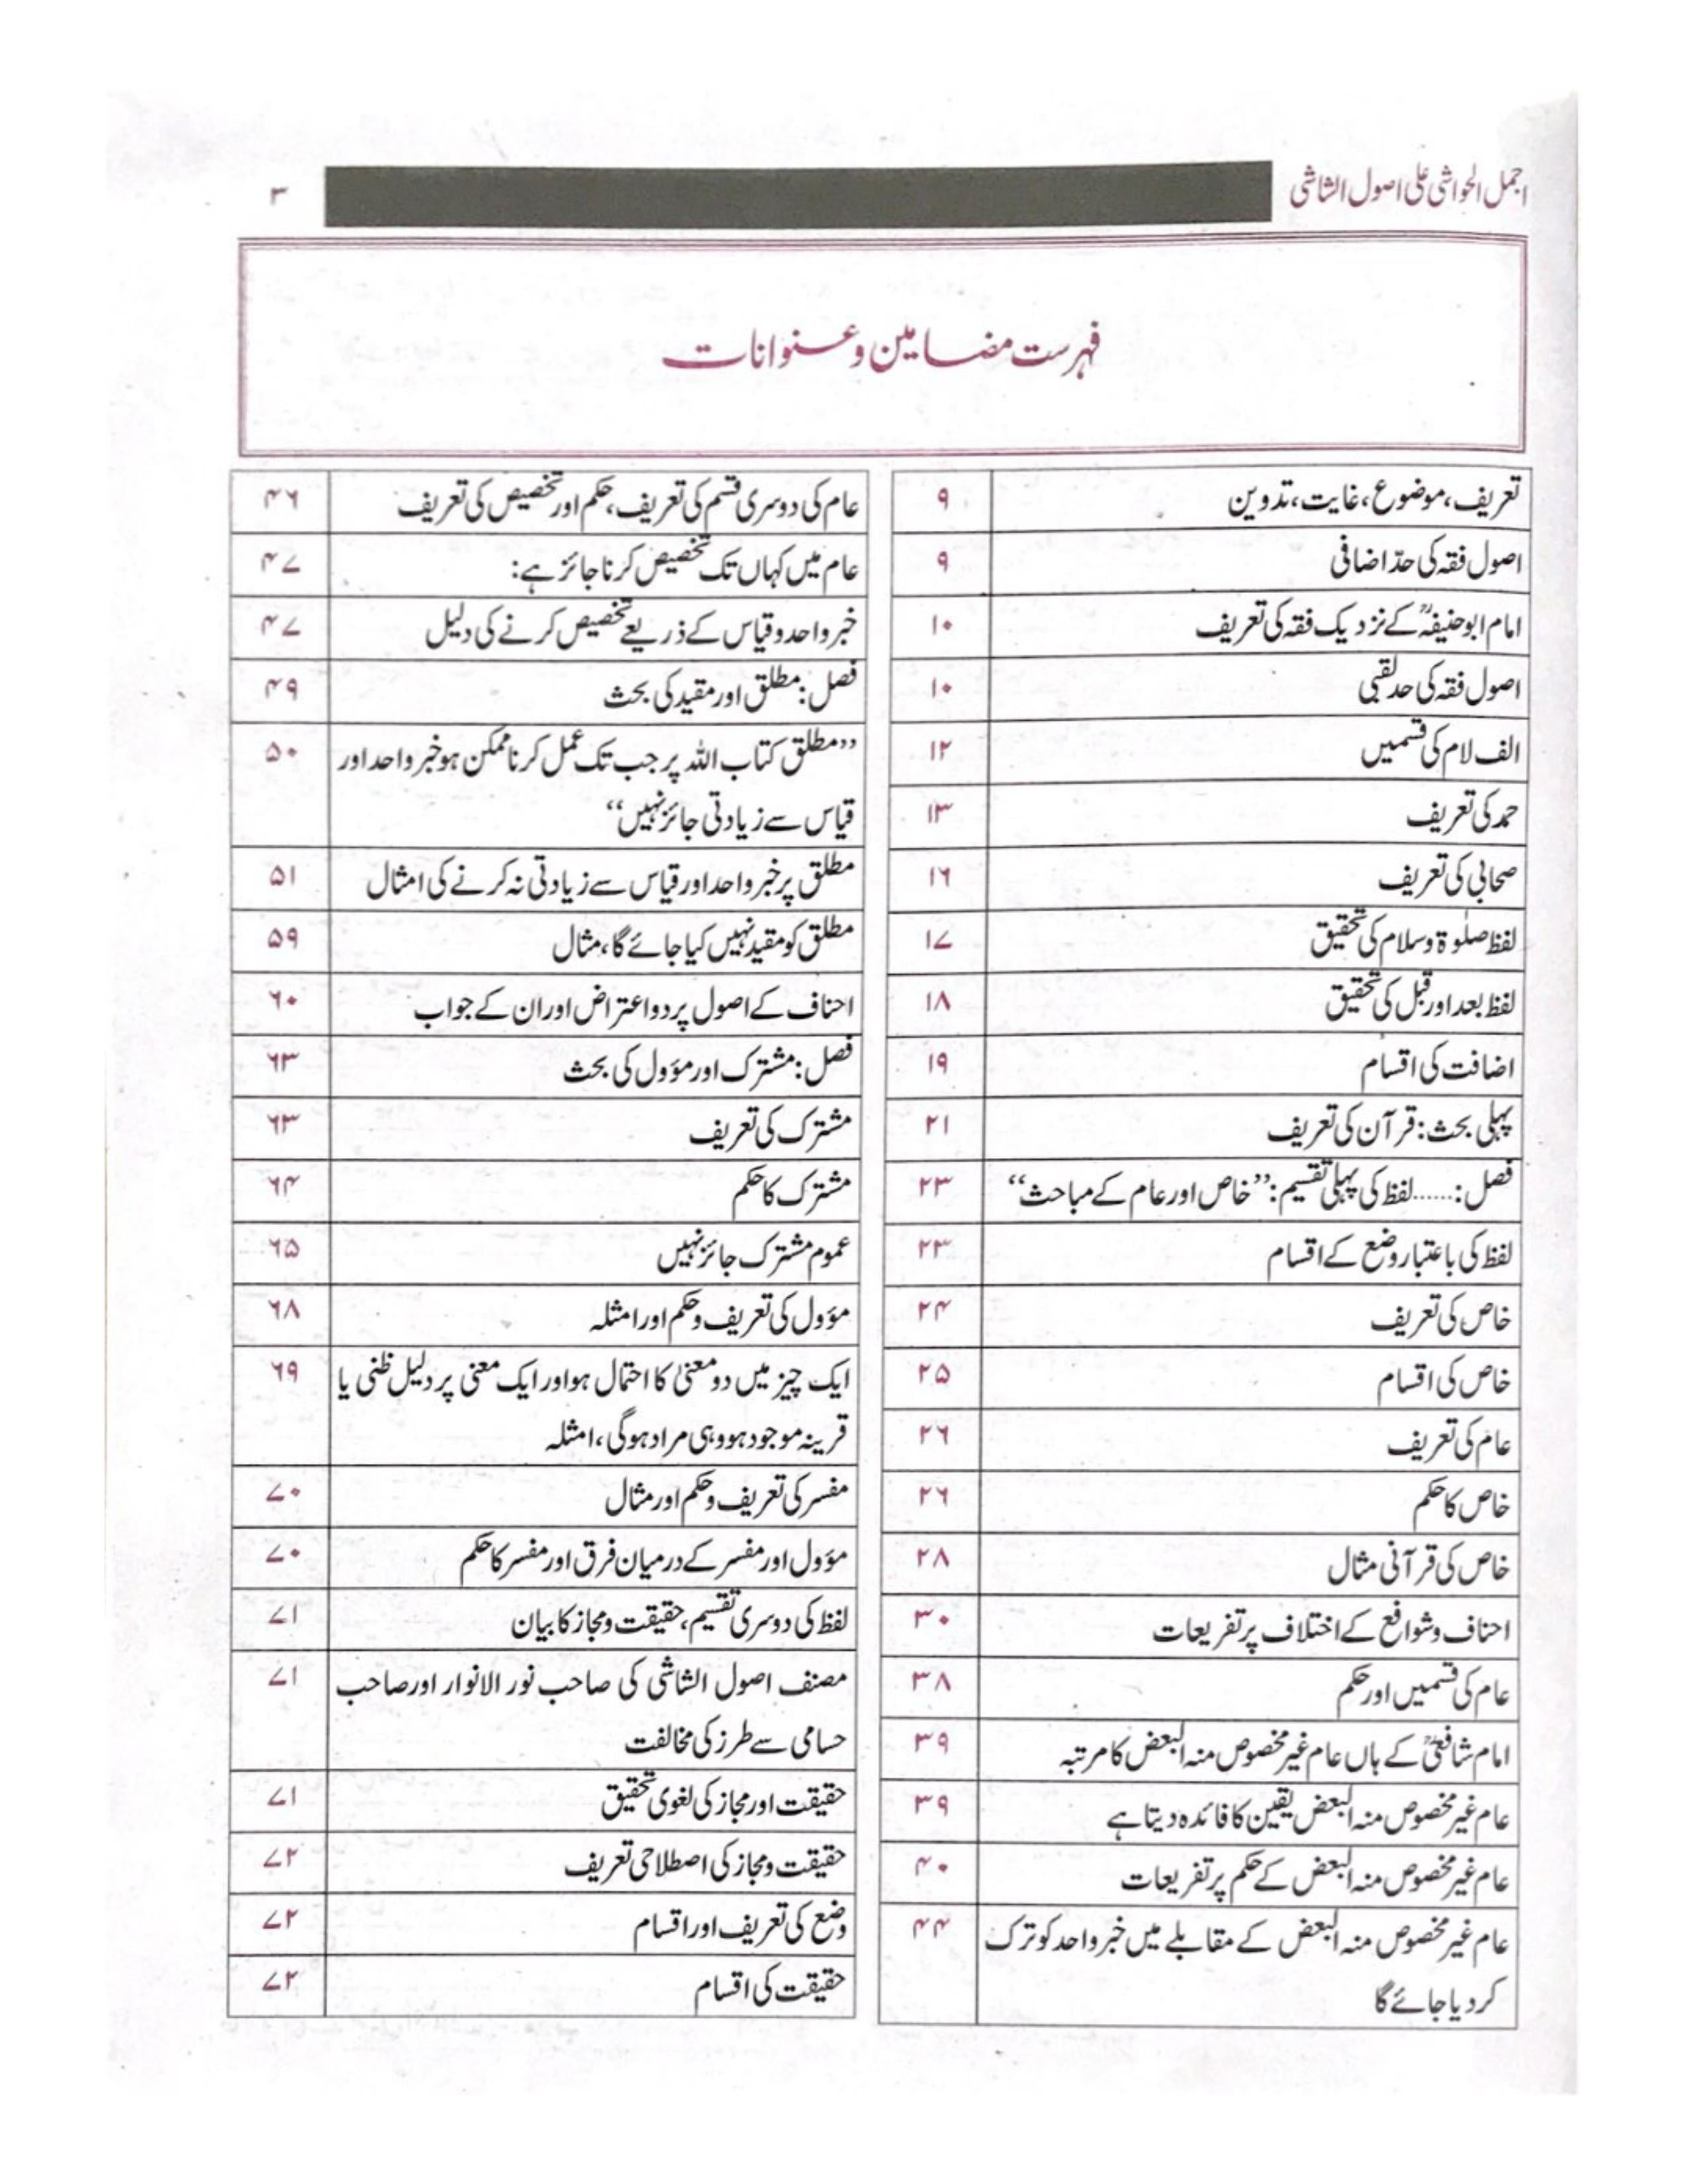 اجمل الحواشی علی اصول الشاشی
۳
فہرست مضامین وعنوانات
تعریف، موضوع، غایت، تدوین ۹
اصول فقہ کی حدّ اضافی ۹
امام ابوحنیفہؒ کے نزدیک فقہ کی تعریف ۱۰
اصول فقہ کی حد لقبی ۱۰
الف لام کی قسمیں ۱۲
حمد کی تعریف ۱۳
صحابی کی تعریف ۱۶
لفظ صلوٰۃ وسلام کی تحقیق ۱۷
لفظ بعد اور قبل کی تحقیق ۱۸
اضافت کی اقسام ۱۹
پہلی بحث: قرآن کی تعریف ۲۱
فصل:......لفظ کی پہلی تقسیم: ”خاص اور عام کے مباحث“ ۲۳
لفظ کی باعتبار وضع کے اقسام ۲۳
خاص کی تعریف ۲۴
خاص کی اقسام ۲۵
عام کی تعریف ۲۶
خاص کا حکم ۲۶
خاص کی قرآنی مثال ۲۸
احناف وشوافع کے اختلاف پر تفریعات ۳۰
عام کی قسمیں اور حکم ۳۸
امام شافعیؒ کے ہاں عام غیر مخصوص منہ البعض کا مرتبہ ۳۹
عام غیر مخصوص منہ البعض یقین کا فائدہ دیتا ہے ۳۹
عام غیر مخصوص منہ البعض کے حکم پر تفریعات ۴۰
عام غیر مخصوص منہ البعض کے مقابلے میں خبر واحد کو ترک ۴۴
کردیا جائے گا
عام کی دوسری قسم کی تعریف، حکم اور تخصیص کی تعریف ۴۶
عام میں کہاں تک تخصیص کرنا جائز ہے: ۴۷
خبر واحد وقیاس کے ذریعے تخصیص کرنے کی دلیل ۴۷
فصل: مطلق اور مقید کی بحث ۴۹
”مطلق کتاب اللہ پر جب تک عمل کرنا ممکن ہو خبر واحد اور ۵۰
قیاس سے زیادتی جائز نہیں“
مطلق پر خبر واحد اور قیاس سے زیادتی نہ کرنے کی امثال ۵۱
مطلق کو مقید نہیں کیا جائے گا، مثال ۵۹
احناف کے اصول پر دو اعتراض اور ان کے جواب ۶۰
فصل: مشترک اور مؤول کی بحث ۶۳
مشترک کی تعریف ۶۳
مشترک کا حکم ۶۴
عموم مشترک جائز نہیں ۶۵
مؤول کی تعریف وحکم اور امثلہ ۶۸
ایک چیز میں دو معنیٰ کا احتمال ہو اور ایک معنی پر دلیل ظنی یا ۶۹
قرینہ موجود ہو وہی مراد ہوگی، امثلہ
مفسر کی تعریف وحکم اور مثال ۷۰
مؤول اور مفسر کے درمیان فرق اور مفسر کا حکم ۷۰
لفظ کی دوسری تقسیم، حقیقت ومجاز کا بیان ۷۱
مصنف اصول الشاشی کی صاحب نور الانوار اور صاحب ۷۱
حسامی سے طرز کی مخالفت
حقیقت اور مجاز کی لغوی تحقیق ۷۱
حقیقت ومجاز کی اصطلاحی تعریف ۷۲
وضع کی تعریف اور اقسام ۷۲
حقیقت کی اقسام ۷۲